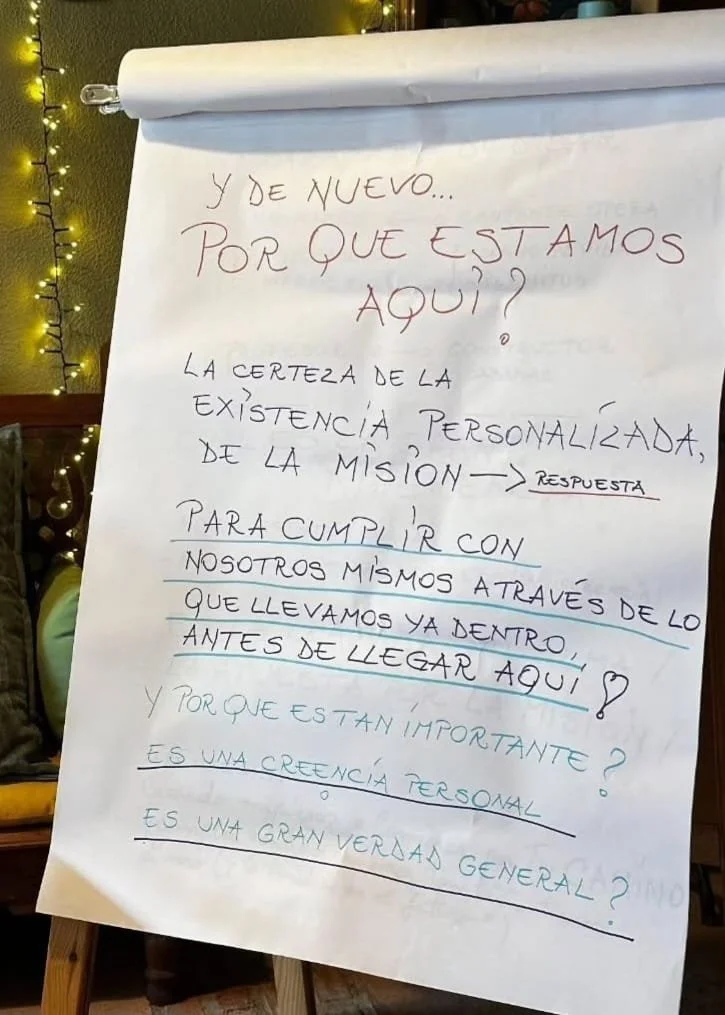 Y DE NUEVO...
POR QUE ESTAMOS
AQUÌ?
LA CERTEZA DE LA
EXISTENCIA PERSONALIZADA,
DE LA MISION → RESPUESTA
PARA CUMPLIR CON
NOSOTROS MISMOS A TRAVÉS DE LO
QUE LLEVAMOS YA DENTRO,
ANTES DE LLEGAR AQUÍ!
Y POR QUE ES TAN IMPORTANTE?
ES UNA CREENCIA PERSONAL
O
ES UNA GRAN VERDAD GENERAL?